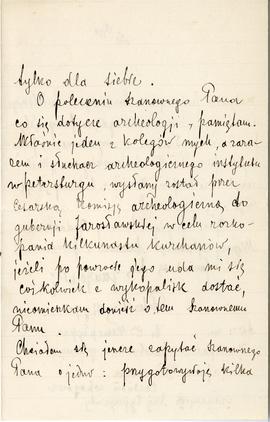 tylko dla siebie.
O poleceniu szanownego Pana
co się dotycze archeologji, pamiętam.
Właśnie jeden z kolegów mych, a zara-
zem i słuchacz archeologicznego instytutu
w petersburgu, wysłany został przez
Cesarską Komisję archeologiczną do
gubernji Jarosławskiej w celu rozko-
pania kilkunastu kurchanów,
jeżeli po powrocie jego uda mi się
cośkolwiek z wykopalisk dostać,
nieomieszkam donieść o tem szanownemu
Panu.
Chciałem się jeszcze zapytać szanownego
Pana o jedno: przygotowywuję kilka